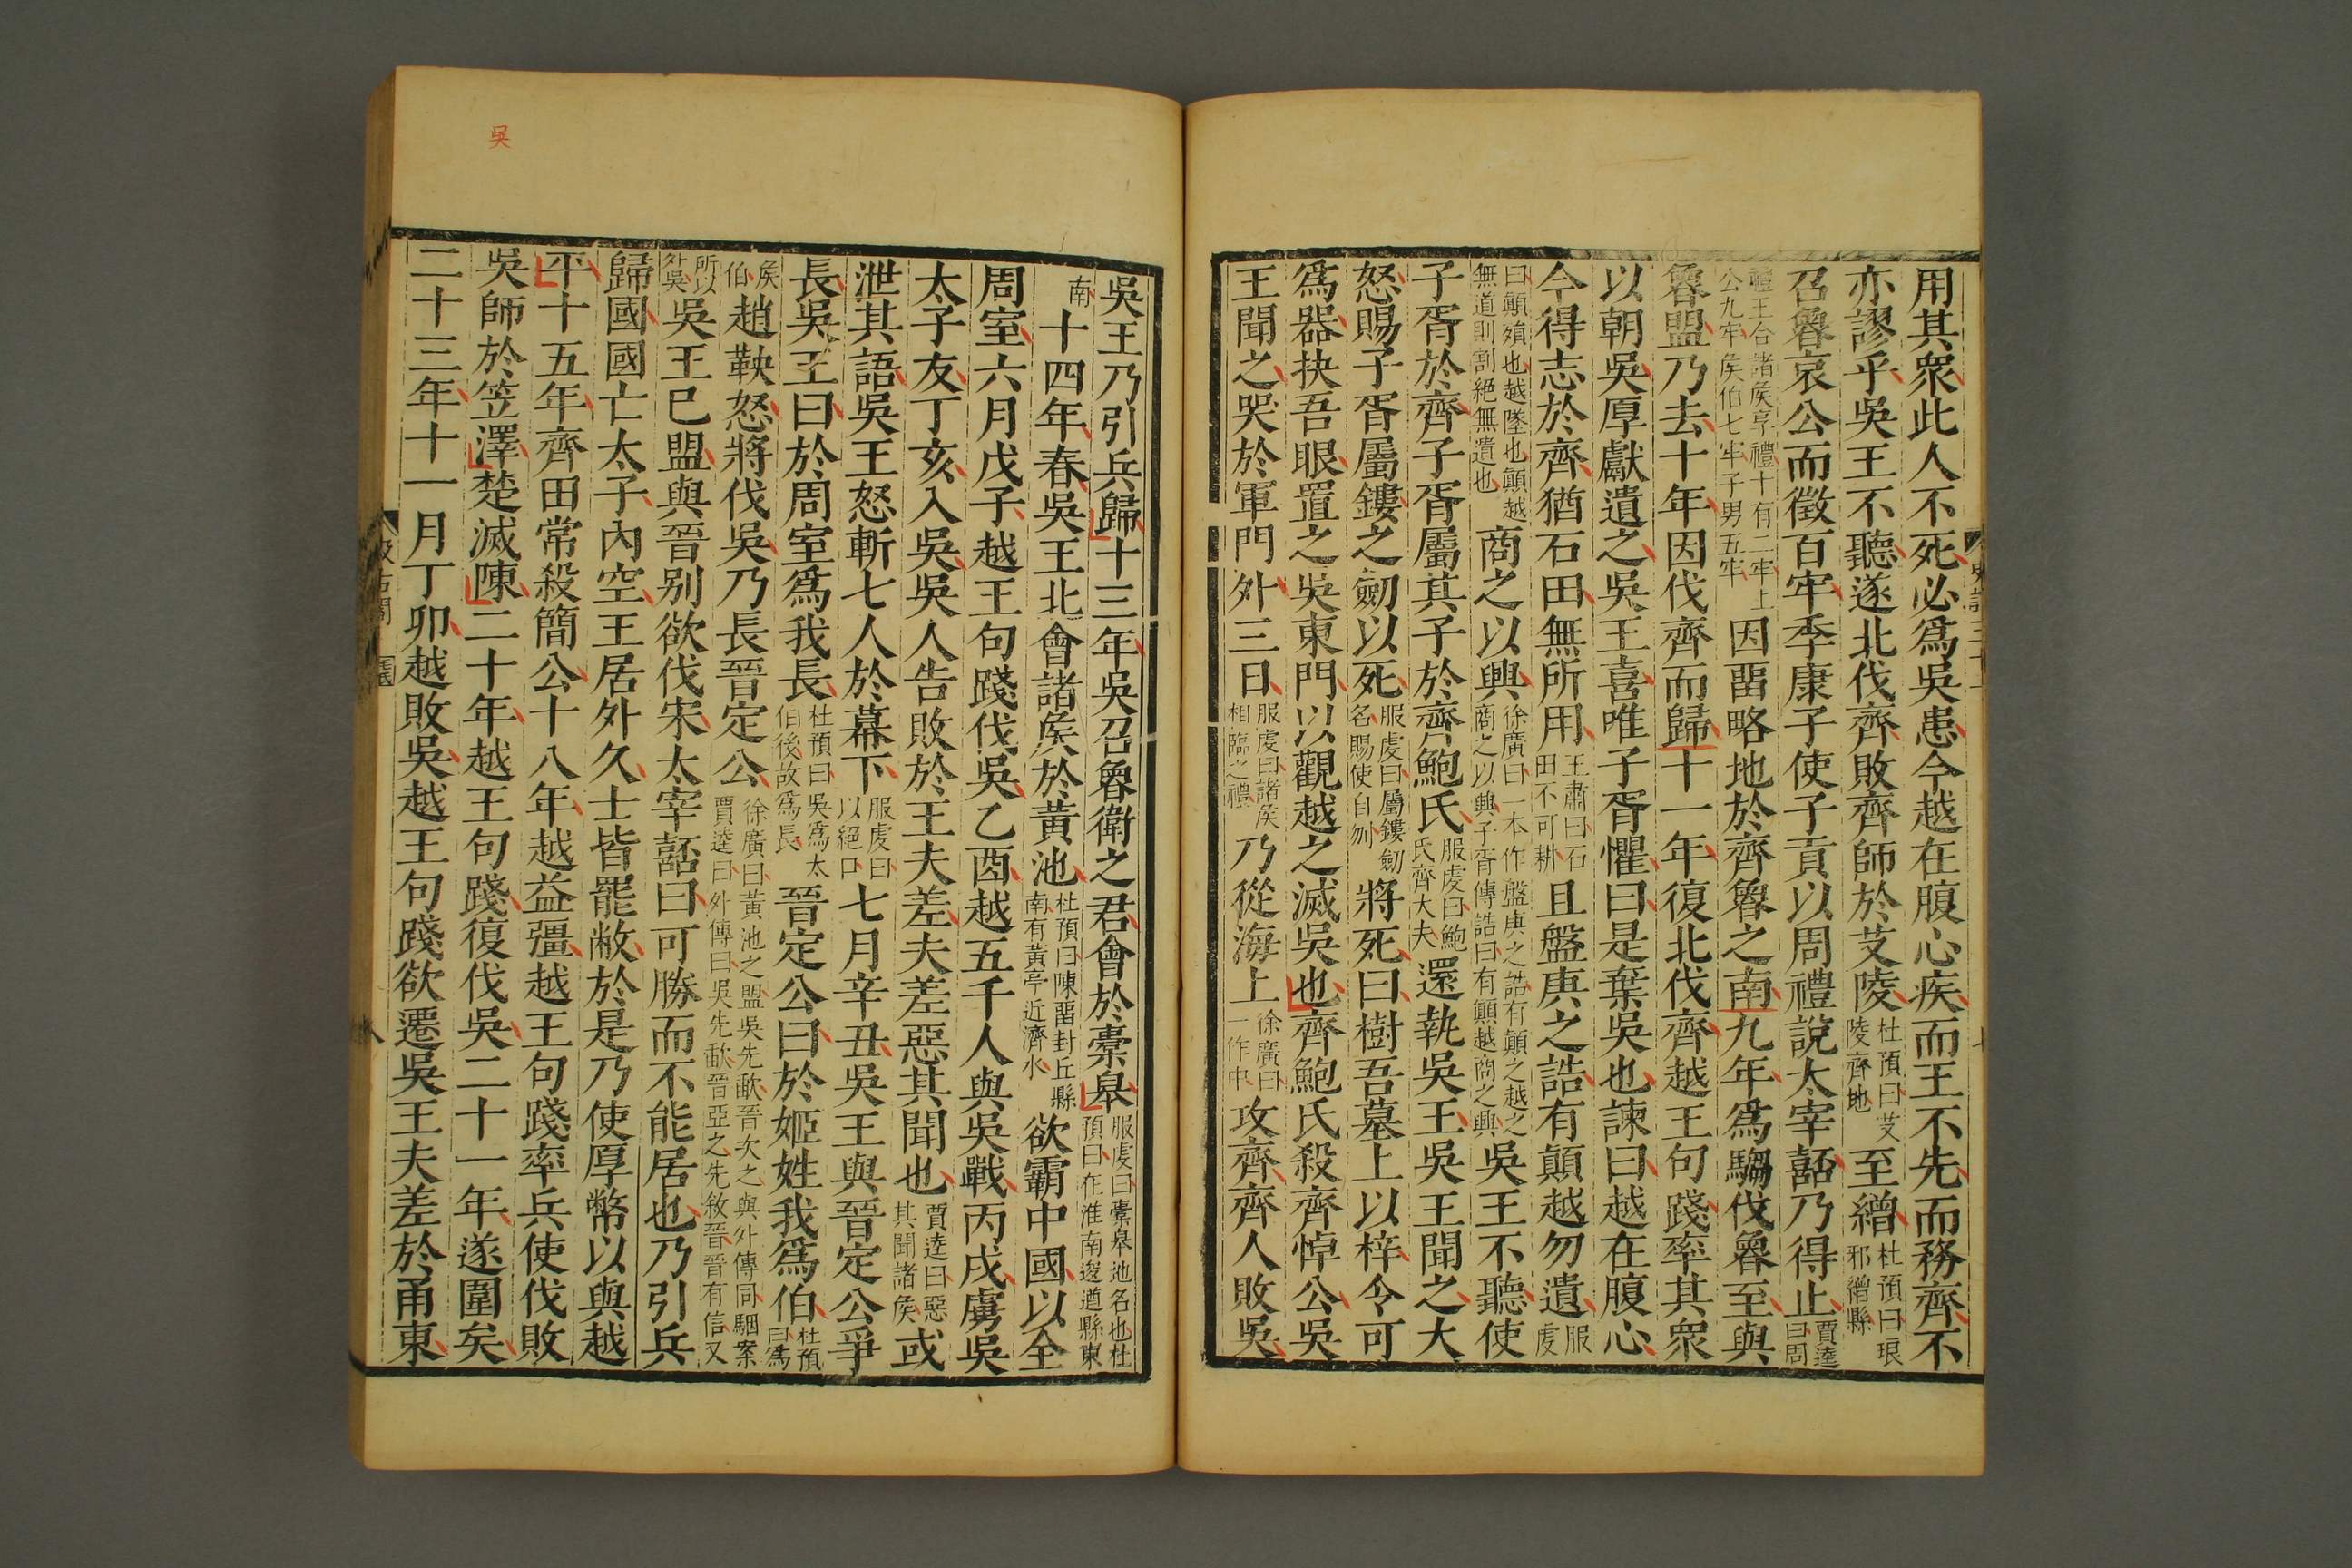 用其衆此人不死必爲吳患今越在腹心疾而王不先而務齊不
亦謬乎吳王不聽遂北伐齊敗齊師於艾陵杜預曰艾陵齊地至繒杜預曰琅邪繒縣
召魯哀公而徵百牢季康子使子貢以周禮說太宰嚭乃得止賈逵曰周
禮王合諸侯享禮十有二牢上公九牢侯伯七牢子男五牢因畱略地於齊魯之南九年爲騶伐魯至與
魯盟乃去十年因伐齊而歸十一年復北伐齊越王句踐率其衆
以朝吳厚獻遺之吳王喜唯子胥懼曰是棄吳也諫曰越在腹心
今得志於齊猶石田無所用王肅曰石田不可耕且盤庚之誥有顛越勿遺服虔
曰顛殞也越墜也顛越無道則割絕無遺也商之以興徐廣曰一本作盤庚之誥有顛之越之商之以興子胥傳誥曰有顛越商之興吳王不聽使
子胥於齊子胥屬其子於齊鮑氏服虔曰鮑氏齊大夫還執吳王吳王聞之大
怒賜子胥屬鏤之劒以死服虔曰屬鏤劒名賜使自刎將死曰樹吾墓上以梓令可
爲器抉吾眼置之吳東門以觀越之滅吳也齊鮑氏殺齊悼公吳
王聞之哭於軍門外三日服虔曰諸侯相臨之禮乃從海上徐廣曰一作中攻齊齊人敗吳
吳王乃引兵歸十三年吳召魯衛之君會於橐皋服虔曰橐皋地名也杜預曰在淮南逡遒縣東
南十四年春吳王北會諸侯於黃池杜預曰陳畱封丘縣南有黃亭近濟水欲霸中國以全
周室六月戊子越王句踐伐吳乙酉越五千人與吳戰丙戌虜吳
太子友丁亥入吳吳人告敗於王夫差夫差惡其聞也賈逵曰惡其聞諸侯或
泄其語吳王怒斬七人於幕下服虔曰以絕口七月辛丑吳王與晉定公爭
長吳王曰於周室爲我長杜預曰吳爲太伯後故爲長晉定公曰於姬姓我爲伯杜預曰爲
侯伯趙鞅怒將伐吳乃長晉定公徐廣曰黃池之盟吳先歃晉次之與外傳同駰案賈逵曰外傳曰吳先歃晉亞之先敘晉晉有信又
所以外吳吳王已盟與晉别欲伐宋太宰嚭曰可勝而不能居也乃引兵
歸國國亡太子內空王居外久士皆罷敝於是乃使厚幣以與越
平十五年齊田常殺簡公十八年越益彊越王句踐率兵使伐敗
吳師於笠澤楚滅陳二十年越王句踐復伐吳二十一年遂圍吳
二十三年十一月丁卯越敗吳越王句踐欲遷吳王夫差於甬東
吳